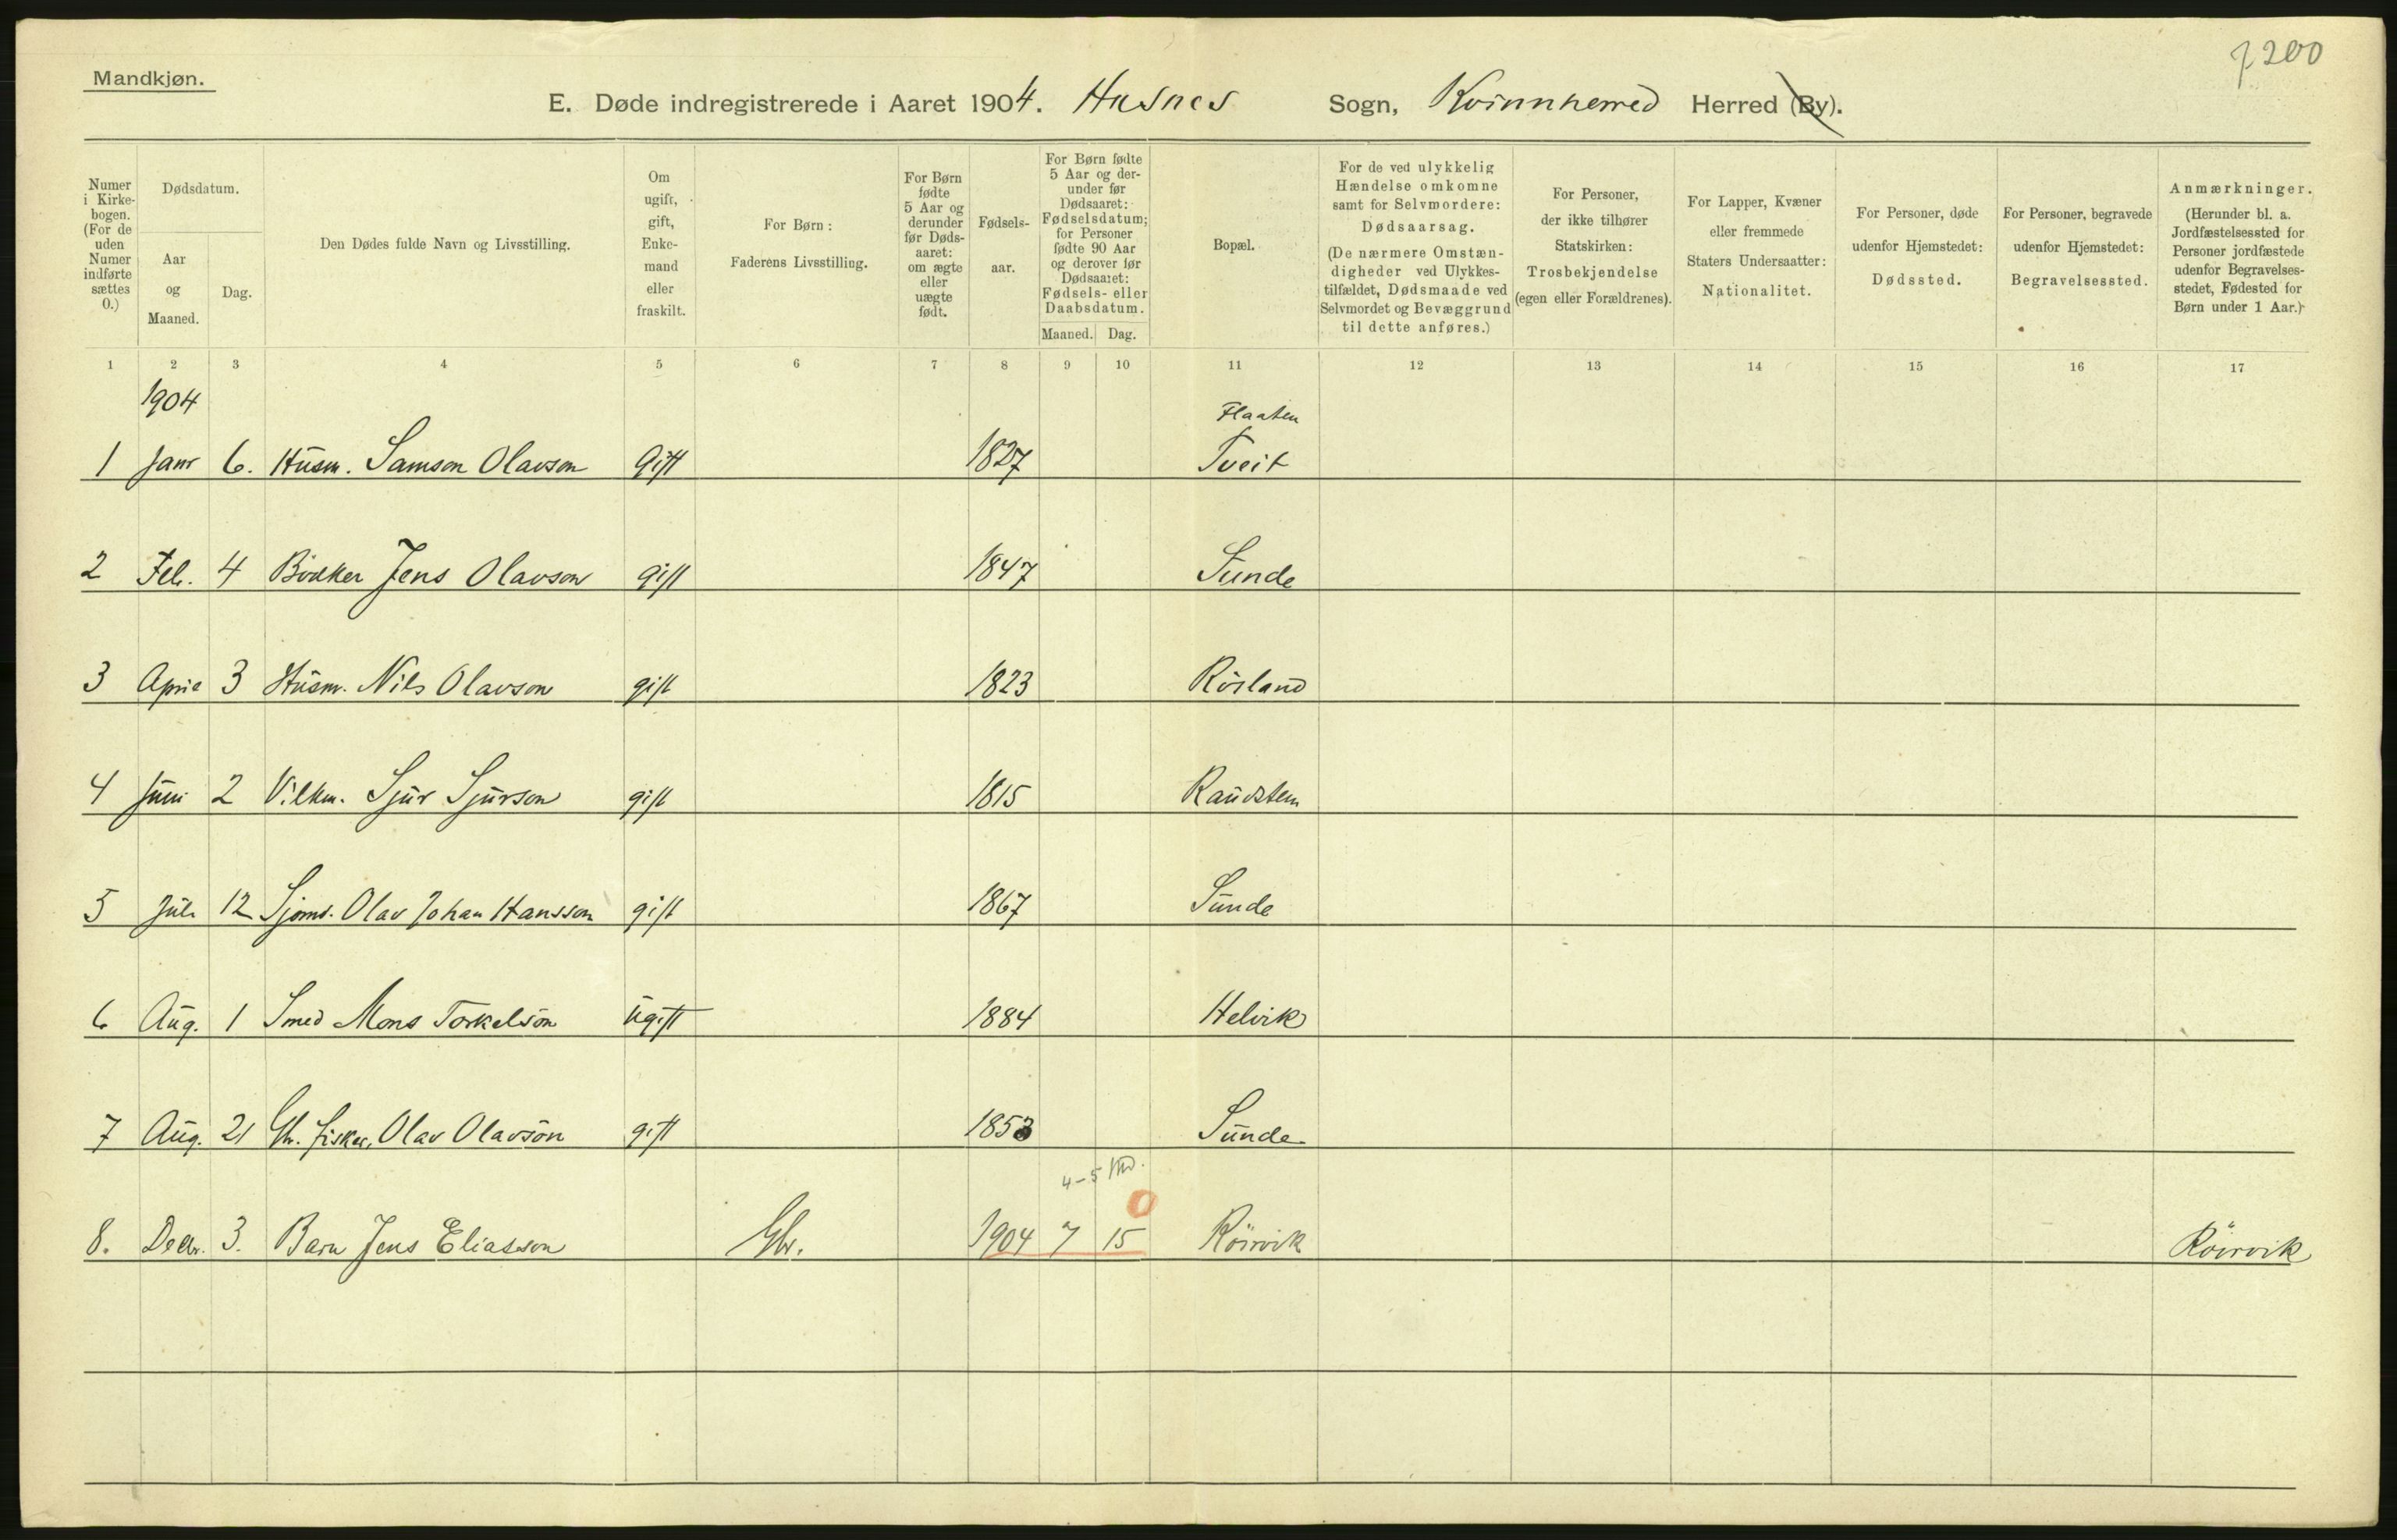 7200
Mandkjøn.
E. Døde indregistrerede i Aaret 1904. Husnes Sogn, Kvinnherred Herred (By).
Numer i Kirkebogen. (For de uden Numer indførte sættes 0.)
Dødsdatum.
Aar og Maaned.
Dag.
Den Dødes fulde Navn og Livsstilling.
Om ugift, gift, Enkemand eller fraskilt.
For Børn: Faderens Livsstilling.
For Børn fødte 5 Aar og derunder før Dødsaaret: om ægte eller uægte født.
Fødselsaar.
For Børn fødte 5 Aar og derunder før Dødsaaret: Fødselsdatum; for Personer fødte 90 Aar og derover før Dødsaaret: Fødsels- eller Daabsdatum.
Maaned. Dag.
Bopæl.
For de ved ulykkelig Hændelse omkomne samt for Selvmordere: Dødsaarsag. (De nærmere Omstændigheder ved Ulykkestilfældet, Dødsmaade ved Selvmordet og Bevæggrund til dette anføres.)
For Personer, der ikke tilhører Statskirken: Trosbekjendelse (egen eller Forældrenes).
For Lapper, Kvæner eller fremmede Staters Undersaatter: Nationalitet.
For Personer, døde udenfor Hjemstedet: Dødssted.
For Personer, begravede udenfor Hjemstedet: Begravelsessted.
Anmærkninger. (Herunder bl. a. Jordfæstelsessted for Personer jordfæstede udenfor Begravelsesstedet, Fødested for Børn under 1 Aar.)
1 2 3 4 5 6 7 8 9 10 11 12 13 14 15 16 17
1904
Flaaten
1 Janr 6. Husm. Samson Olavson Gift 1827 Tveit
2 Feb. 4 Bödker Jens Olavson gift 1847 Sunde
3 April 3 Husm. Nils Olavson gift 1823 Rösland
4 Juni 2 Vilkm. Sjur Sjurson gift 1815 Raudstein
5 Juli 12 Sjömd. Olav Johan Hansson gift 1867 Sunde
6 Aug. 1 Smed Mons Torkelsön ugift 1884 Helvik
7 Aug. 21 Gbr. fisker, Olav Olavsön gift 1853 Sunde
4-5 Md.
0
8. Decbr. 3. Barn Jens Eliasson Gbr. 1904 7 15 Röirvik Röirvik